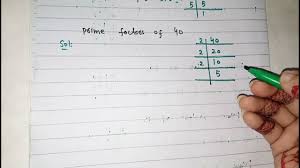 5 | 5
1
prime factors of 40
Sol:
2 | 40
2 | 20
2 | 10
5